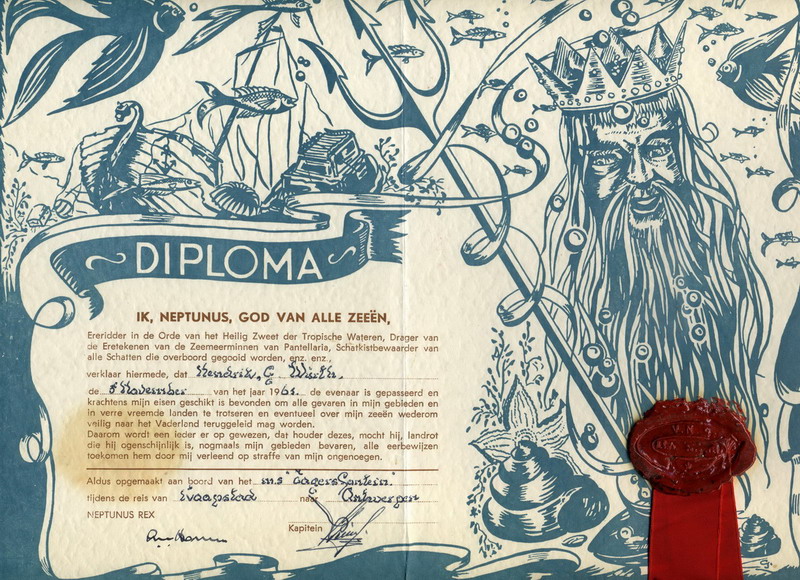 DIPLOMA
IK, NEPTUNUS, GOD VAN ALLE ZEEËN,
Ereridder in de Orde van het Heilig Zweet der Tropische Wateren, Drager van
de Eretekenen van de Zeemeerminnen van Pantellaria, Schatkistbewaarder van
alle Schatten die overboord gegooid worden, enz. enz.,
verklaar hiermede, dat Hendrik, G.
de 5 November van het jaar 1961. de evenaar is gepasseerd en
krachtens mijn eisen geschikt is bevonden om alle gevaren in mijn gebieden en
in verre vreemde landen te trotseren en eventueel over mijn zeeën wederom
veilig naar het Vaderland teruggeleid mag worden.
Daarom wordt een ieder er op gewezen, dat houder dezes, mocht hij, landrot
die hij ogenschijnlijk is, nogmaals mijn gebieden bevaren, alle eerbewijzen
toekomen hem door mij verleend op straffe van mijn ongenoegen.
Aldus opgemaakt aan boord van het m.s. "Jagersfontein"
tijdens de reis van Kaapstad naar Antwerpen
NEPTUNUS REX
Kapitein